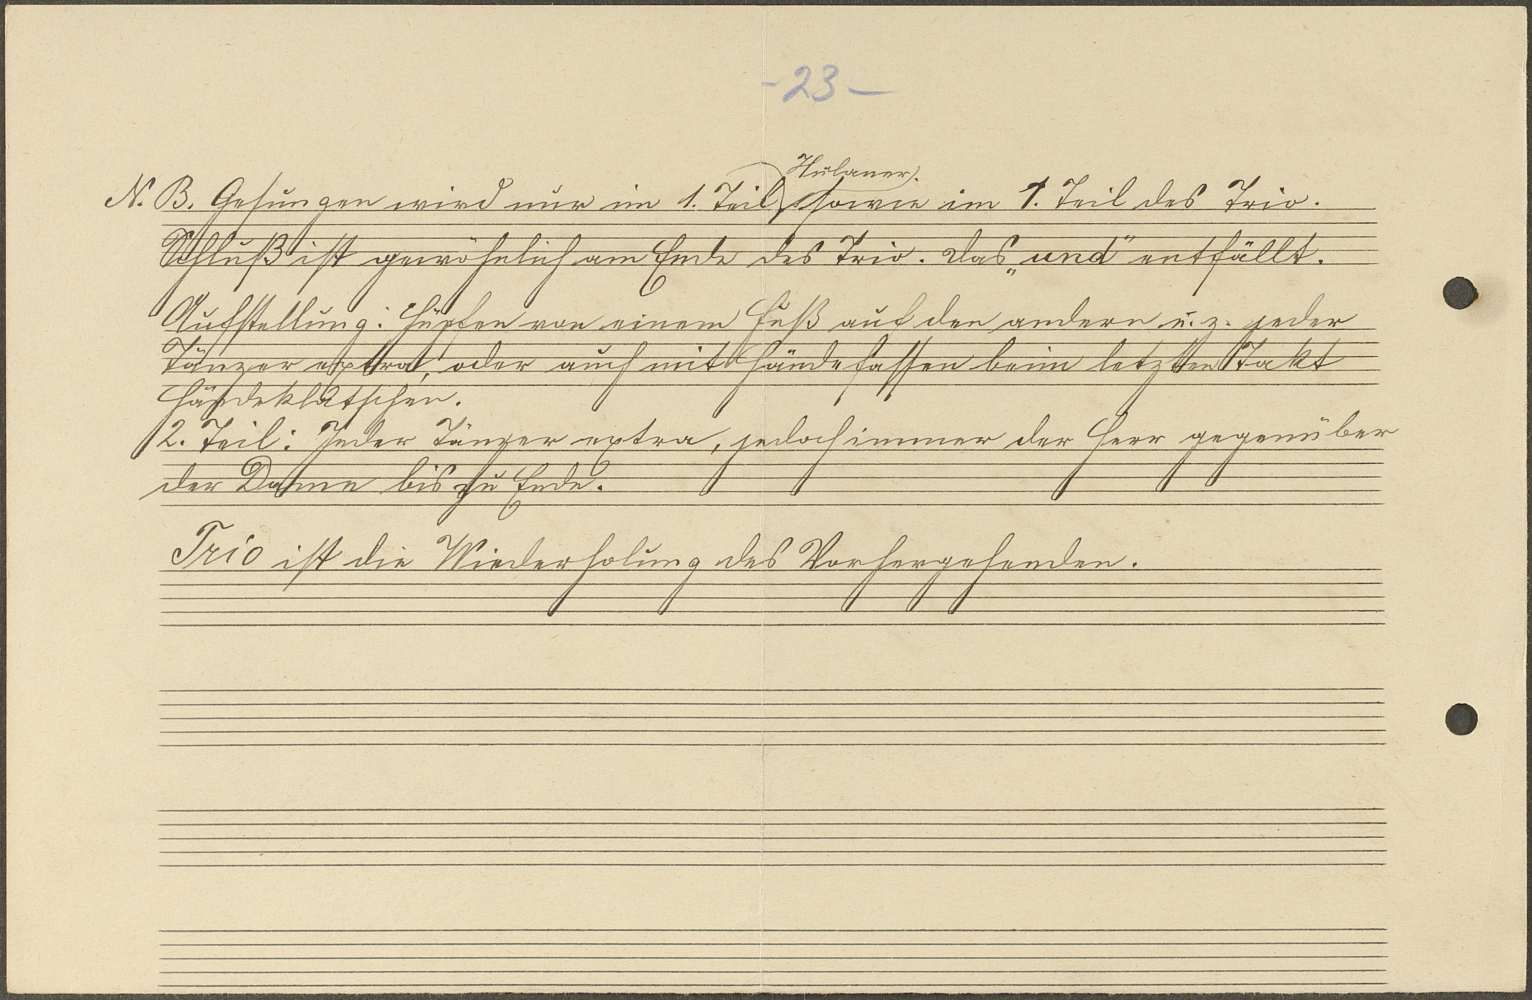 -23-
Hulaner.
N. B. Gesungen wird nur im 1. Teil, sowie im 1. Teil des Trio.
Schluß ist gewöhnlich am Ende des Trio. Das „und" entfällt.
Aufstellung: Hüpfen von einem Fuß auf den andern u. z. jeder
Tänzer extra, oder auch mit Händefassen beim letzten Takt
Händeklatschen.
2. Teil: Jeder Tänzer extra, jedoch immer der Herr gegenüber
der Dame bis zu Ende.
Trio ist die Wiederholung des Vorhergehenden.